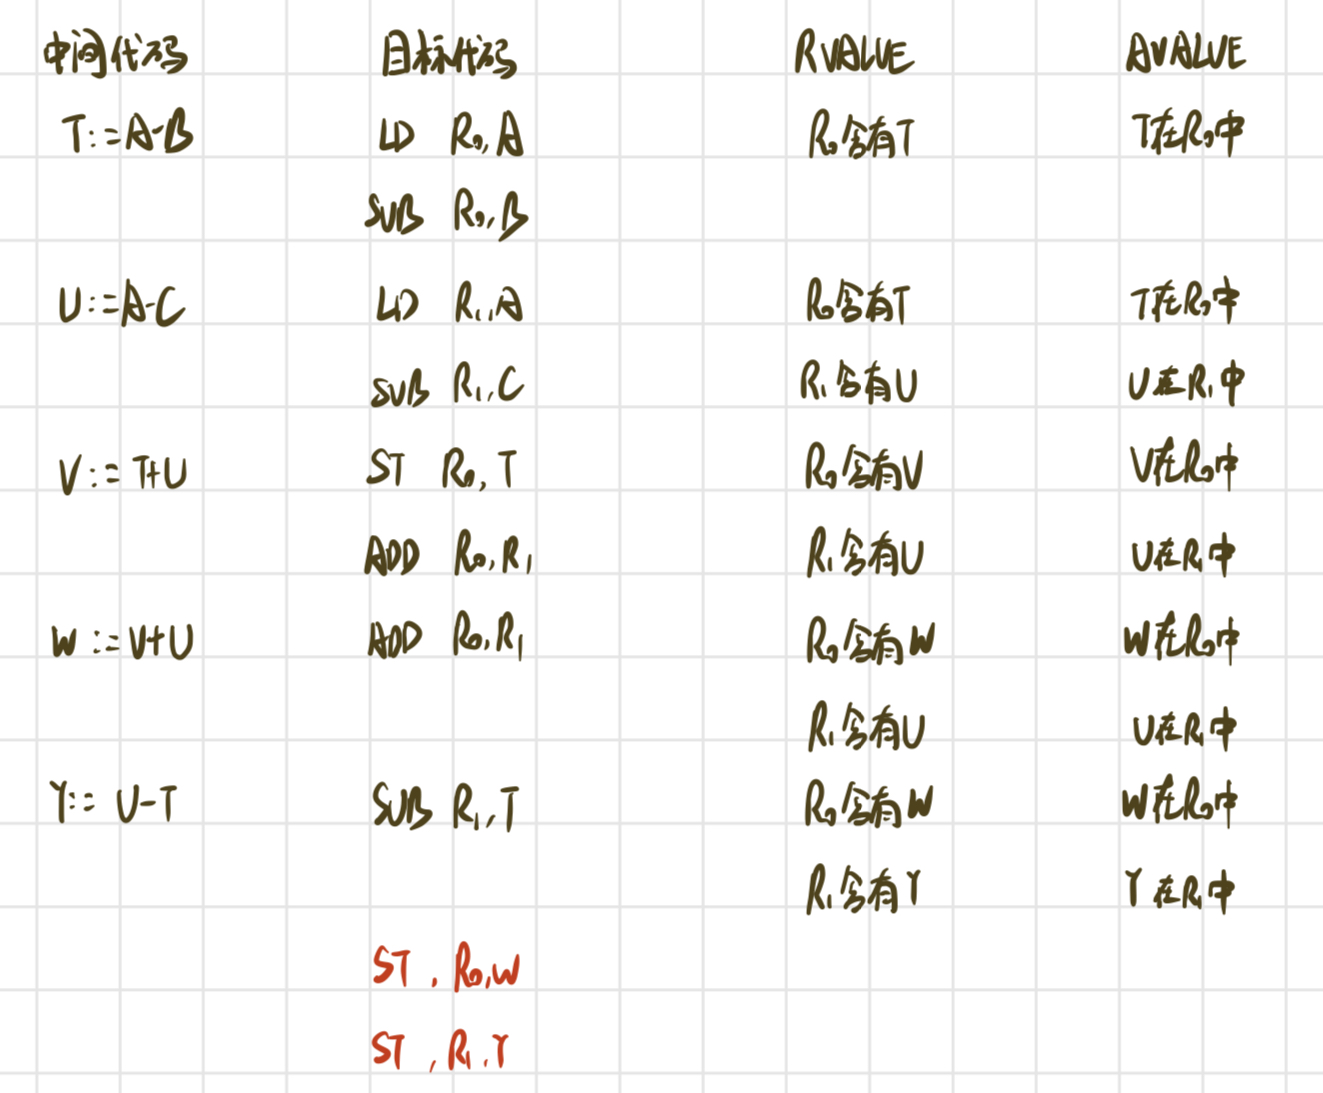 中间代码 目标代码 RVALUE AVALUE
T:=A-B LD R₀,A R₀含有T T在R₀中
SUB R₀,B
U:=A-C LD R₁,A R₀含有T T在R₀中
SUB R₁,C R₁含有U U在R₁中
V:=T+U ST R₀,T R₀含有V V在R₀中
ADD R₀,R₁ R₁含有U U在R₁中
W:=V+U ADD R₀,R₁ R₀含有W W在R₀中
R₁含有U U在R₁中
Y:=U-T SUB R₁,T R₀含有W W在R₀中
R₁含有Y Y在R₁中
ST , R₀,W
ST , R₁,Y